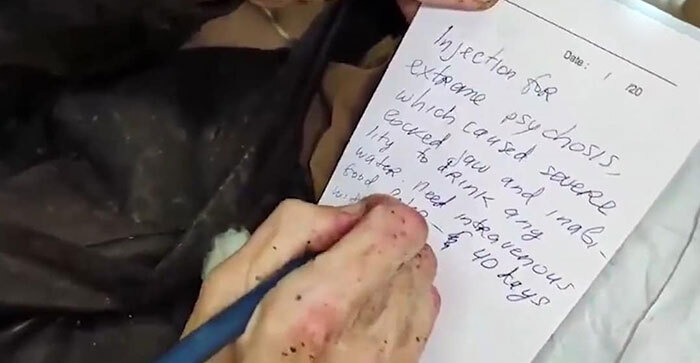 Date: / /20
Injection FOR
extreme psychosis,
which caused severe
Locked jaw and inabi-
lity to DRink any
water. Need intravenous
food 40 days